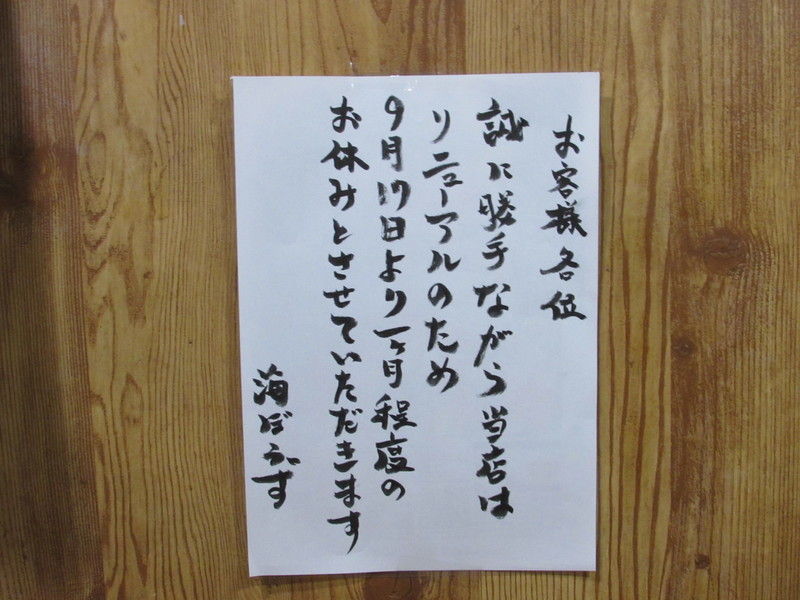 お客様各位
誠に勝手ながら当店は
リニューアルのため
9月17日より一ヶ月程度の
お休みとさせていただきます
海ぼうず